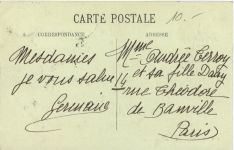 CARTE POSTALE
10.-
CORRESPONDANCE
ADRESSE
Mesdames
je vous salue
Germaine
Mme Andrée Terroy
et sa fille Dany
14 rue Théodore
de Banville
Paris